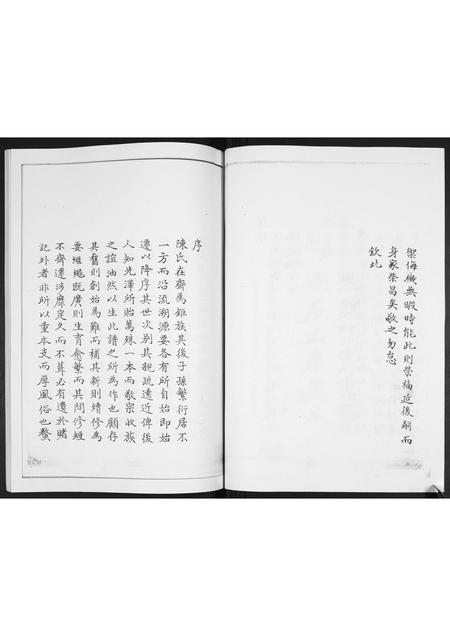 禦侮纖無暇時能此則榮福延後嗣而
身家榮昌矣敬之勿怠
欽此
序
陳氏在齊為鉅族其後子孫繁衍居不
一方而沿流溯源要各有所自始即始
遷以降序其世次別其親疏遠近俾後
人知先澤所貽萬殊一本而敬宗收族
之誼油然以生此譜之所為作也顧存
其舊則創始為難而補其新則續修為
要繼繩既廣則生育愈繁而其間修短
不齊遷涉靡定久而不葺必有遺於睹
記外者非所以重本支而厚風俗也